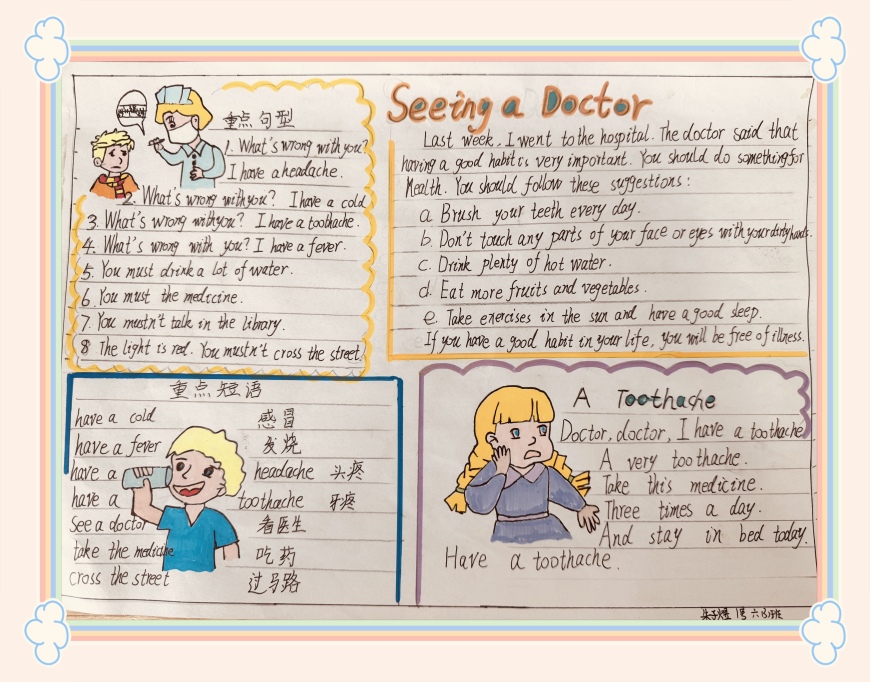 重点句型
1. What's wrong with you?
I have a headache.
2. What's wrong with you? I have a cold
3. What's wrong with you? I have a toothache.
4. What's wrong with you? I have a fever.
5. You must drink a lot of water.
6. You must the medicine.
7. You mustn't talk in the library.
8 The light is red. You mustn't cross the street.
Seeing a Doctor
Last week, I went to the hospital. The doctor said that
having a good habit is very important. You should do something for
Health. You should follow these suggestions:
a Brush your teeth every day.
b. Don't touch any parts of your face or eyes with your dirty hands.
c. Drink plenty of hot water.
d. Eat more fruits and vegetables.
e. Take exercises in the sun and have a good sleep.
If you have a good habit in your life, you will be free of illness.
重点短语
have a cold 感冒
have a fever 发烧
have a headache 头疼
have a toothache 牙疼
see a doctor 看医生
take the medicine 吃药
cross the street 过马路
A Toothache
Doctor, doctor, I have a toothache
A very toothache.
Take this medicine.
Three times a day.
And stay in bed today.
Have a toothache.
1号